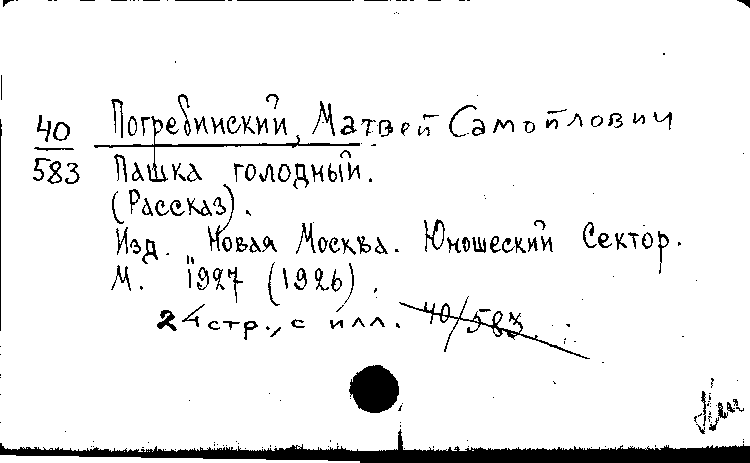 40 Погребинский, Матвей Самойлович
583 Пашка голодный.
(Рассказ).
Изд. Новая Москва. Юношеский Сектор.
М. 1927 (1926).
24 стр., с илл. 40/583